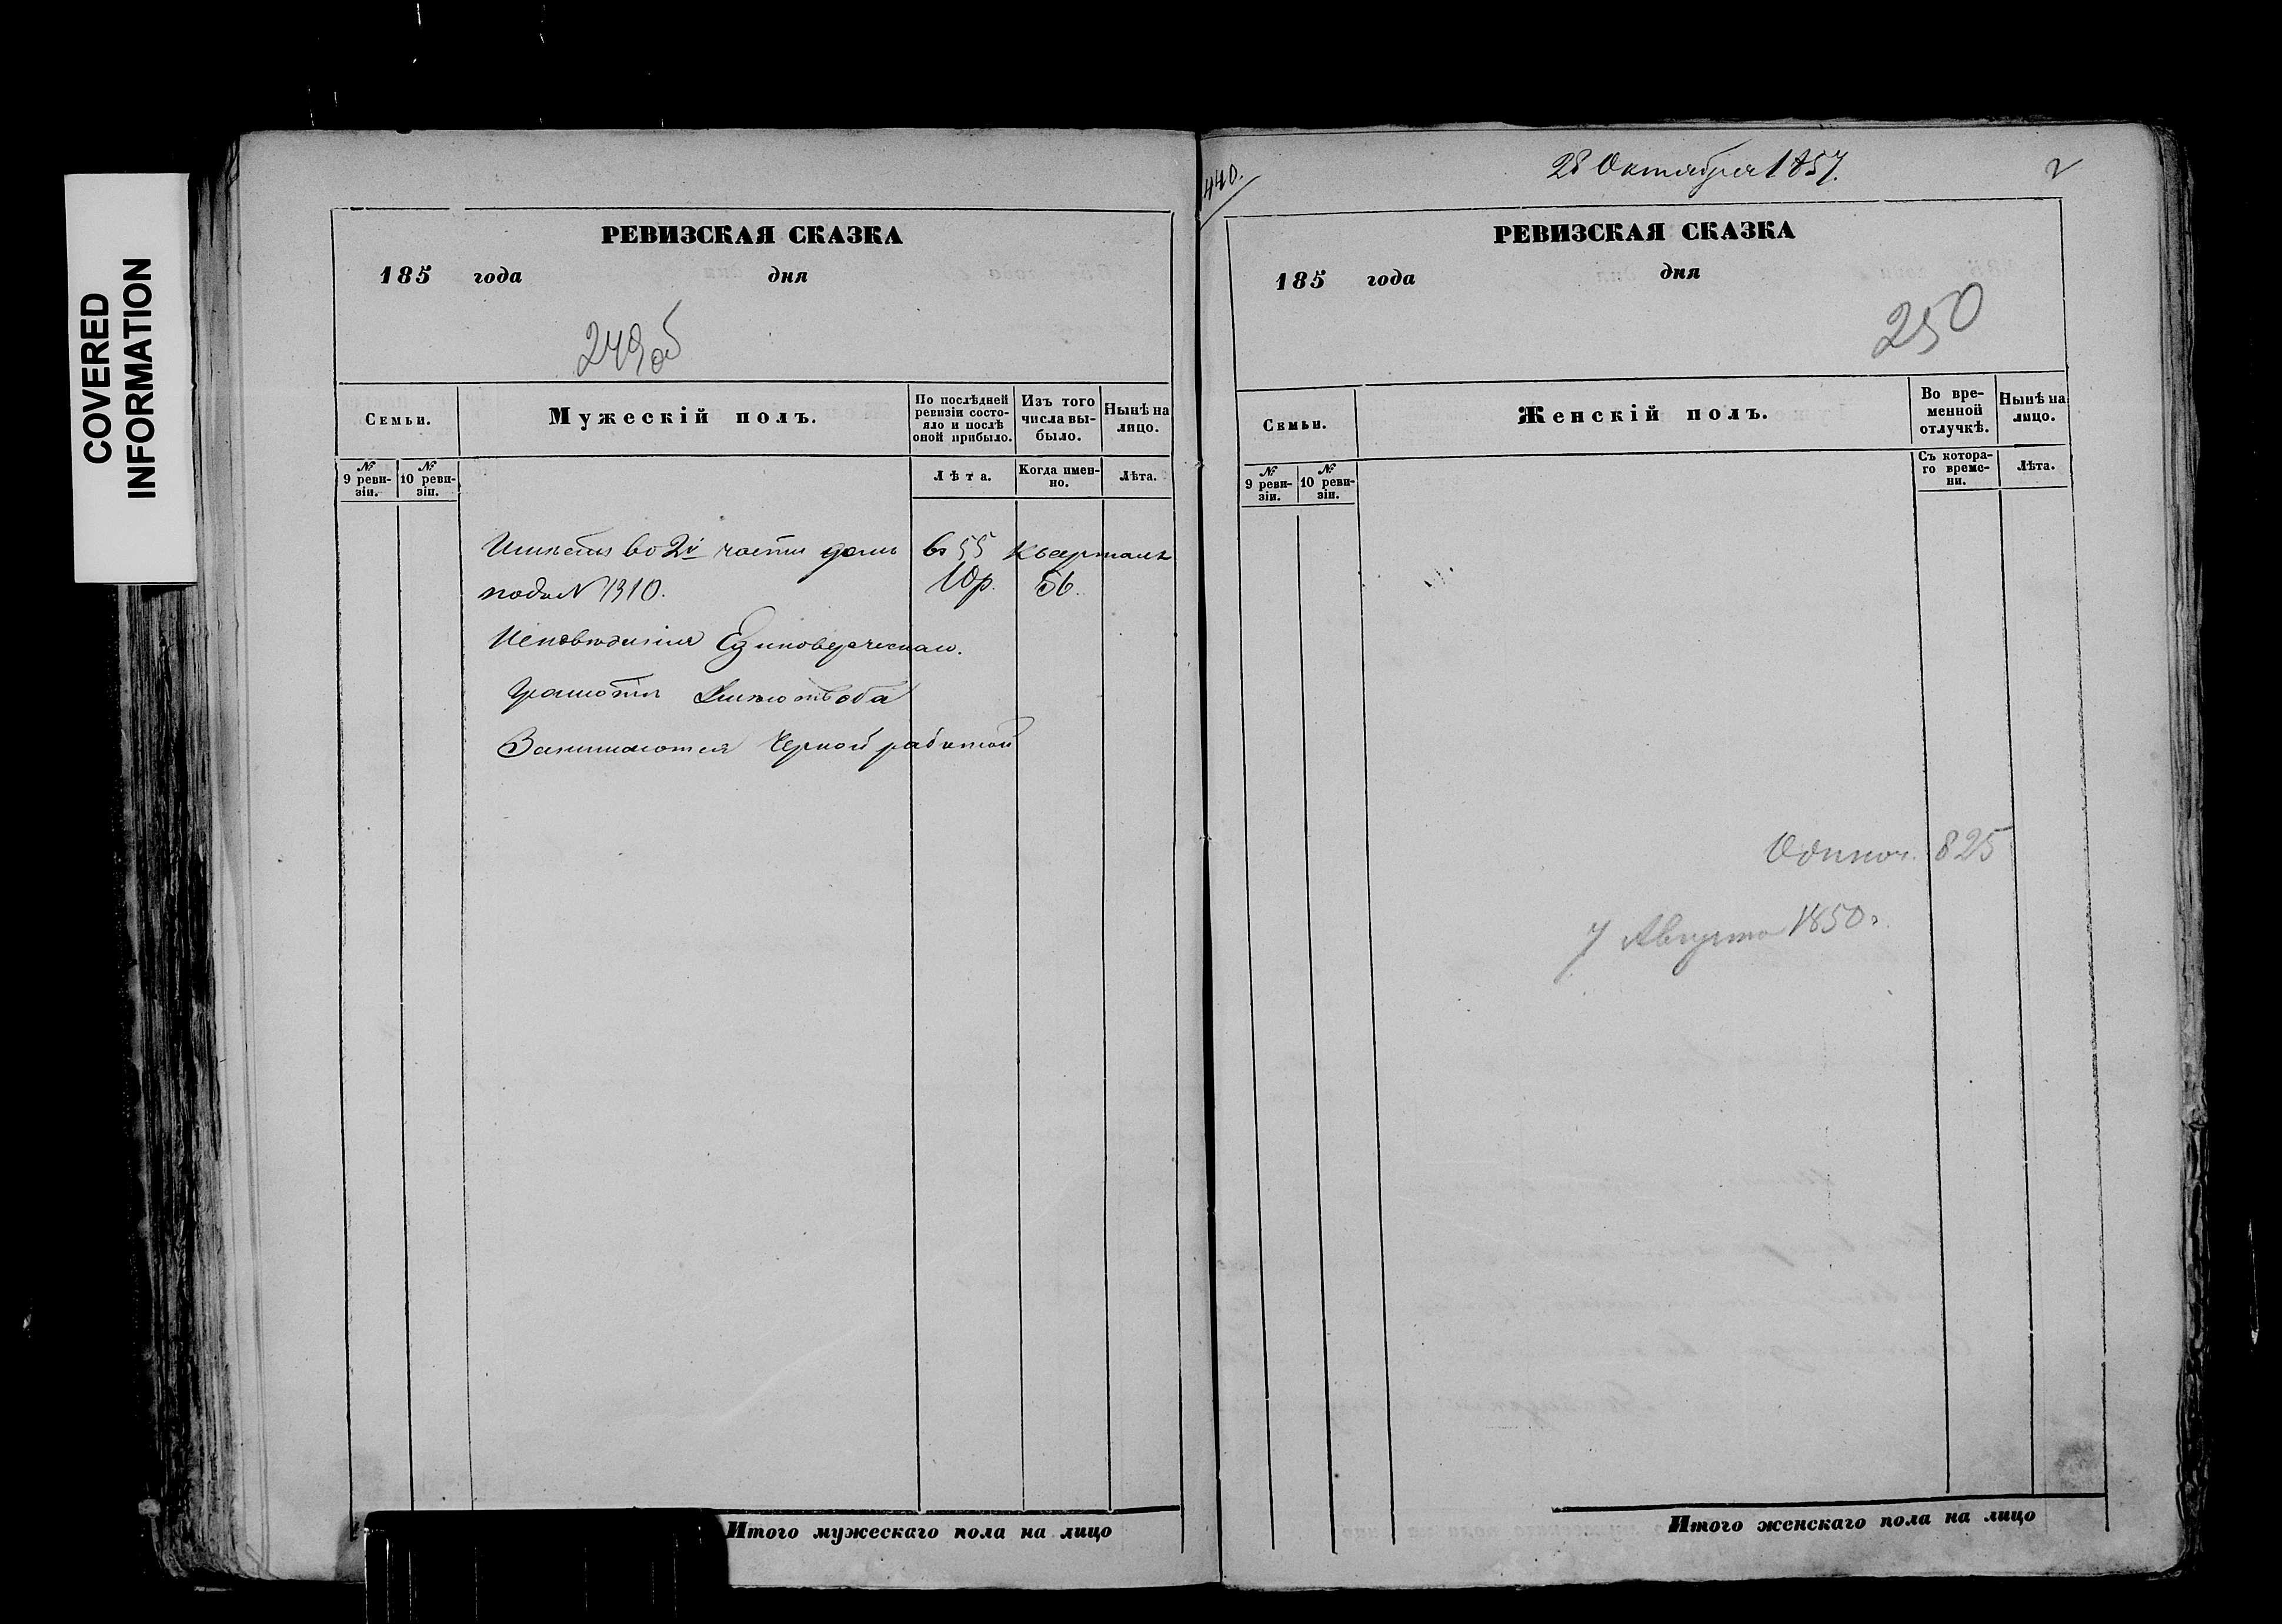 COVERED
INFORMATION
РЕВИЗСКАЯ СКАЗКА
185 года дня
249об
Семьи.
Мужескій полъ.
По послѣдней ревизіи состояло и послѣ оной прибыло.
Изъ того числа выбыло.
Нынѣ на лицо.
№ 9 ревизіи.
№ 10 ревизіи.
Лѣта.
Когда именно.
Лѣта.
во 2й части домъ въ 55 кварталѣ
подъ N 1310. 56.
Исповѣданія Единоверческаго.
Грамотѣ
Занимаются Черной работой
Итого мужескаго пола на лицо
440.
28 Октября 1857.
2
РЕВИЗСКАЯ СКАЗКА
185 года дня
250
Семьи.
Женскій полъ.
Во временной отлучкѣ.
Нынѣ на лицо.
№ 9 ревизіи.
№ 10 ревизіи.
Съ котораго времени.
Лѣта.
Одиноч. 825
7 Августа 1850г
Итого женскаго пола на лицо